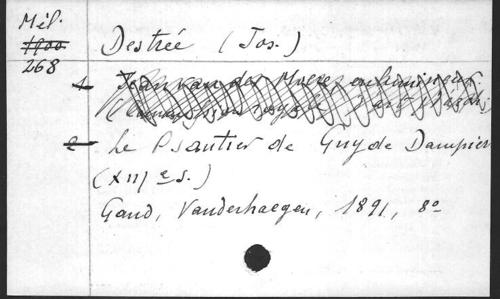 Mél.
1900
268
Destrée (Jos.)
1 Jean van der Moere enlumineur
2 Le Psautier de Guy de Dampierre
(XIII e s.)
Gand, Vanderhaegen, 1891, 8o